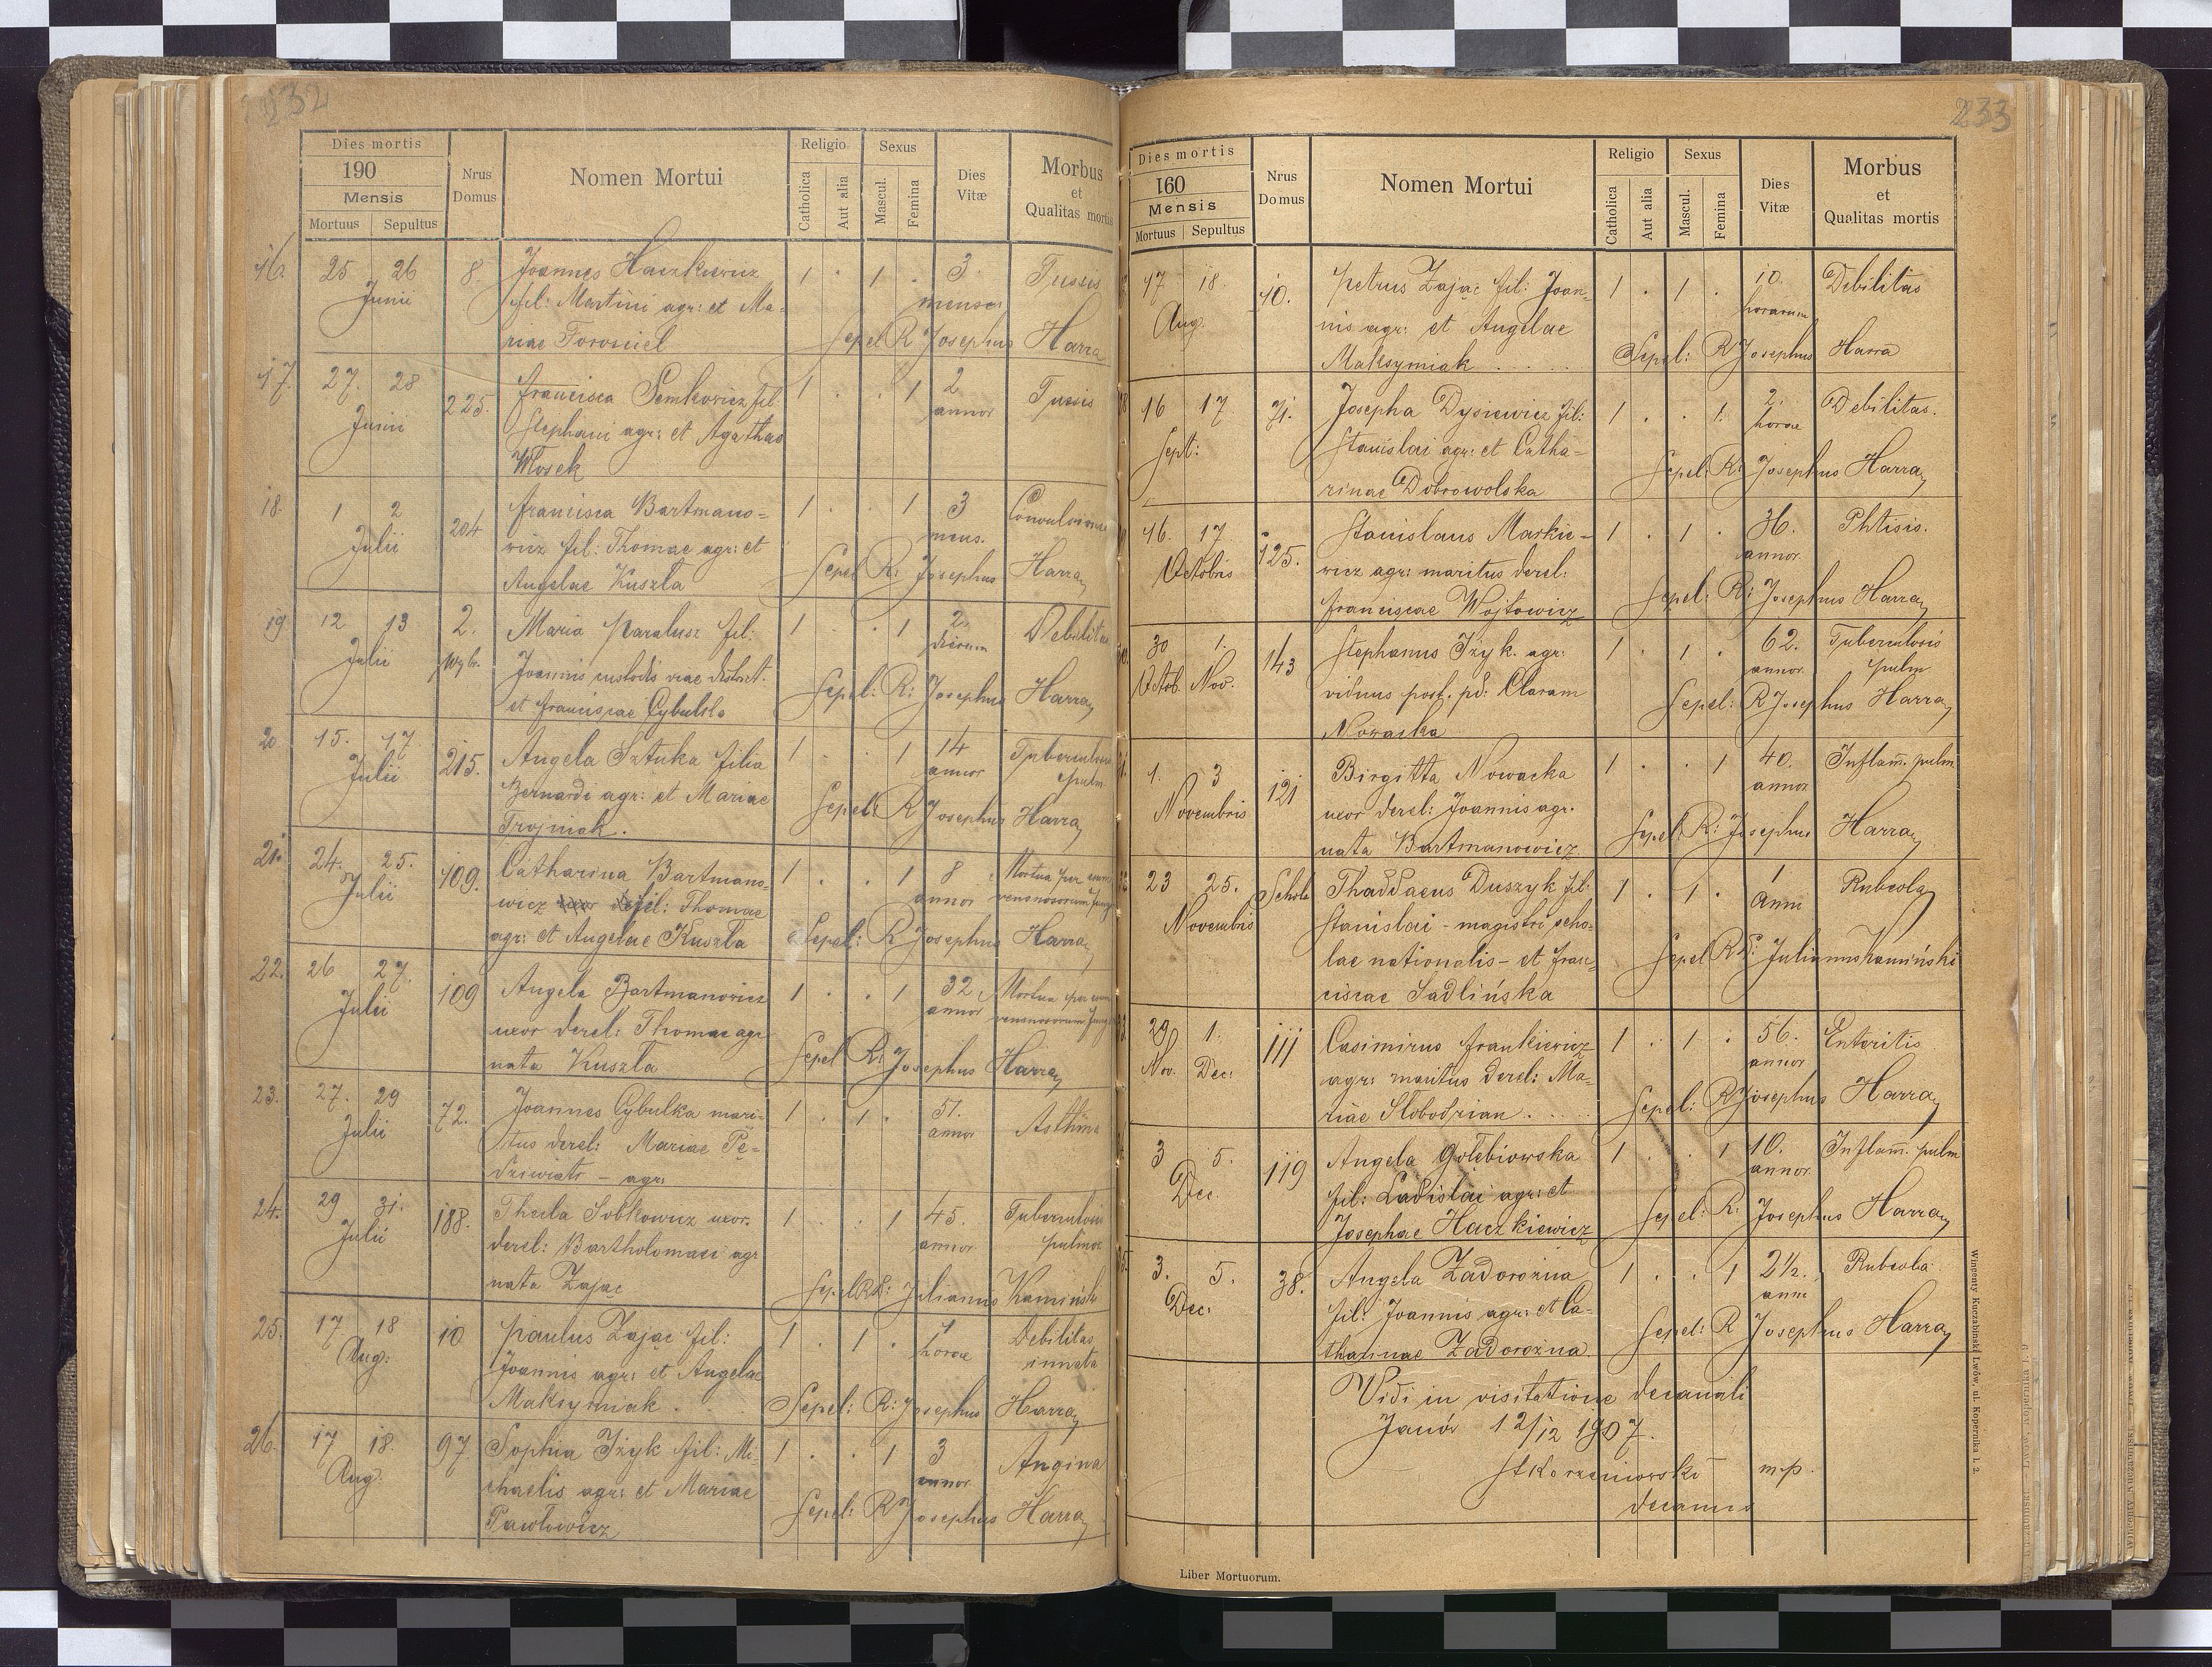 232
Dies mortis
190
Mensis
Mortuus Sepultus
Nrus Domus
Nomen Mortui
Religio
Catholica
Aut alia
Sexus
Mascul.
Femina
Dies Vitæ
Morbus et Qualitas mortis
16. 25 26 8. Joannes Haczkiewicz 1 . 1 . 3 Tussis
Junii fil: Martini agr: et Ma- menses
riae Torosiel Sepel R Josephus Harra
17. 27. 28 225. Francisca Semkowicz fil: 1 . . 1 2 Tussis
Junii Stephani agr: et Agathae annor
Włosek
18. 1 2 204 Francisca Bartmano= 1 . . 1 3 Convulsiones
Julii wicz fil: Thomae agr: et mens.
Angelae Kuszla Sepel R: Josephus Harra
19 12 13 2. Maria Paralusz fil: 1 . . 1 2 Debilitas
Julii Joannis custodis viae district. dierum
et Franciscae Cybulska Sepel: R: Josephus Harra
20 15. 17. 215. Angela Sztuka filia 1 . . 1 14 Tuberculosis
Julii Bernardi agr: et Mariae annor pulm
Trojniak. Sepel: R Josephus Harra
21. 24. 25. 109. Catharina Bartmano= 1 . . 1 8 Mortua per
Julii wicz fil: Thomae annor venenosorum
agr: et Angelae Kuszla Sepel: R Josephus Harra
22. 26 27. 109 Angela Bartmanowicz 1 . . 1 32 Mortua per
Julii uxor derel: Thomae agr annor venenosorum
nata Kuszla Sepel R: Josephus Harra
23. 27. 29 72. Joannes Cybulka mari- 1 . 1 . 51. Asthma
Julii tus derel: Mariae Pę- annor
dziwiatr - agr:
24. 29 31. 188. Thecla Sobkowicz uxor 1 . . 1 45. Tuberculosis
Julii derel: Bartholomaei agr annor pulmon
nata Zając Sepel RR: Julianus Kamiński
25. 17 18 10 Paulus Zając fil: 1 . 1 . horae Debilitas
Aug: Joannis agr: et Angelae innata
Maksymiak. Sepel: R: Josephus Harra
26. 17 18. 97. Sophia Iżyk fil: Mi- 1 . . 1 3 Angina
Aug. chaelis agr: et Mariae annor
Pawłowicz Sepel: R Josephus Harra
233
Dies mortis
160
Mensis
Mortuus Sepultus
Nrus Domus
Nomen Mortui
Religio
Catholica
Aut alia
Sexus
Mascul.
Femina
Dies Vitæ
Morbus et Qualitas mortis
17 18. 10. Petrus Zając fil: Joan- 1 . 1 . 10. Debilitas
Aug. nis agr: et Angelae horarum
Maksymiak . . . . . Sepel: R Josephus Harra
16 17 71. Josepha Dysiewicz fil: 1 . . 1. 2. Debilitas.
Sept: Stanislai agr: et Catha- horae
rinae Dobrowolska Sepel: R: Josephus Harra
16. 17 125. Stanislaus Markie- 1 . 1 . 36. Phtisis.
Octobris wicz agr: maritus derel: annor.
Franciscae Wojtowicz Sepel: R: Josephus Harra
30 1. 143 Stephanus Iżyk. agr: 1 . 1 . 62. Tuberculosis
Octob. Nov. viduus post. pd: Claram annor pulm
Nowacka Sepel: R Josephus Harra
1. 3 121 Birgitta Nowacka 1 . . 1 40. Inflam. pulm
Novembris uxor derel: Joannis agr. annor
nata Bartmanowicz. Sepel R: Josephus Harra
23 25. Schola Thaddaeus Duszyk fil: 1 . 1 . 1 Rubeola
Novembris Stanislai - magistri scho- Anni
lae nationalis - et Fran- Sepel RR: Julianus Kamiński
ciscae Sadlińska
29 1. 111 Casimirus Frankiewicz 1 . 1 . 56. Enteritis
Nov. Dec: agr: maritus derel: Ma- annor
riae Słobodzian . . . . Sepel: R Josephus Harra
3 5. 119 Angela Gołębiowska 1 . . 1 10. Inflam. pulm
Dec. fil: Ladislai agr: et annor.
Josephae Haczkiewicz Sepel: R: Josephus Harra
3. 5. 38. Angela Zadorożna 1 . . 1 2½. Rubeola
Dec. fil: Joannis agr: et Ca- anni
tharinae Zadorożna. Sepel: R Josephus Harra
Vidi in visitatione decanali
Janów 12/12 1907.
St Korzeniowski mp.
decanus
Liber Mortuorum.
Wincenty Kuczabiński Lwów, ul. Kopernika l. 2.